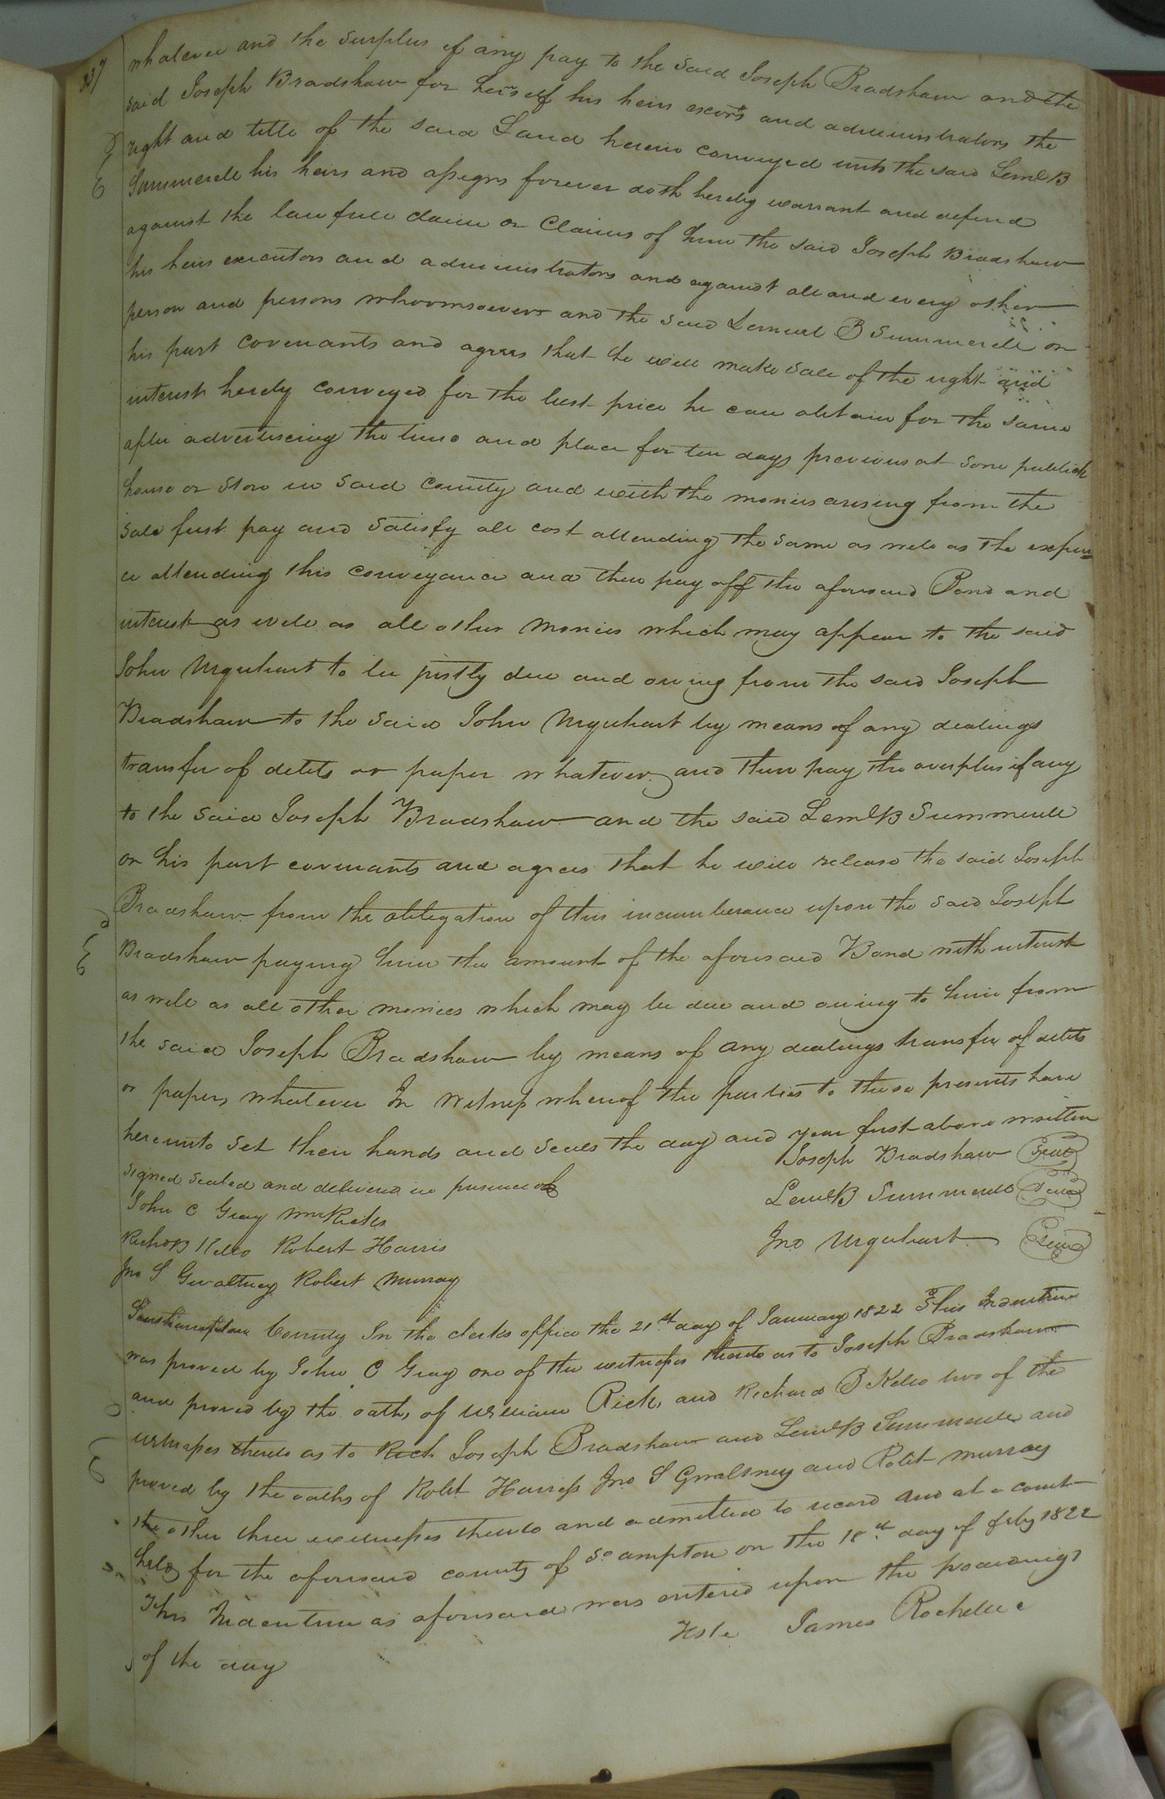 337
whatever and the surplus if any pay to the said Joseph Bradshaw and the
said Joseph Bradshaw for herself his heirs execrs and administrators the
right and title of the said Land herein conveyed unto the said Leml B
Summerell his heirs and assigns forever doth hereby warrant and defend
against the lawfull claim or Claims of him the said Joseph Bradshaw
his heirs executors and administrators and against all and every other
person and persons whoomsoever and the said Lemuel B Summerell on
his part covenants and agrees that he will make sale of the right and
interest hereby conveyed for the best price he can obtain for the same
after advertiseing the time and place for ten days previous at some publick
house or Store in said County and with the monies arising from the
sale first pay and satisfy all cost attending the same as well as the expen
ce attending this conveyance and then pay off the aforesaid Bond and
interest as well as all other monies which may appear to the said
John Urquhart to be justly due and owing from the said Joseph
Bradshaw to the said John Urquhart by means of any dealings
transfer of debts or paper whatever and then pay the overplus if any
to the said Joseph Bradshaw and the said Leml B Summerell
on his part covenants and agrees that he will release the said Joseph
Bradshaw from the obligation of this incumberance upon the said Joseph
Bradshaw paying him the amount of the aforesaid Bond with interest
as well as all other monies which may be due and owing to him from
the said Joseph Bradshaw by means of any dealings transfer of debts
or papers whatever In Witness whereof the parties to these presents have
hereunto set their hands and seals the day and year first above written
Joseph Bradshaw Seal
Signed sealed and delivered in presence of
Leml B Summerell Seal
John C Gray Wm Ricks
Jno Urquhart Seal
Richd B Kello Robert Harris
Jno S Gwaltney Robert Murray
Southampton County In the clerks office the 21st day of January 1822 This Indenture
was proved by John C Gray one of the witnesses thereto as to Joseph Bradshaw
and proved by the oaths of William Rick and Richard B Kello two of the
witnesses thereto as to Rich Joseph Bradshaw and Leml B Summerell and
proved by the oaths of Robt Harriss Jno S Gwaltney and Robt Murray
the other three witnesses thereto and admitted to record And at a court
held for the aforesaid county of So ampton on the 18th day of feby 1822
This Indenture as aforesaid was entered upon the proceedings
of the day
Teste James Rochelle